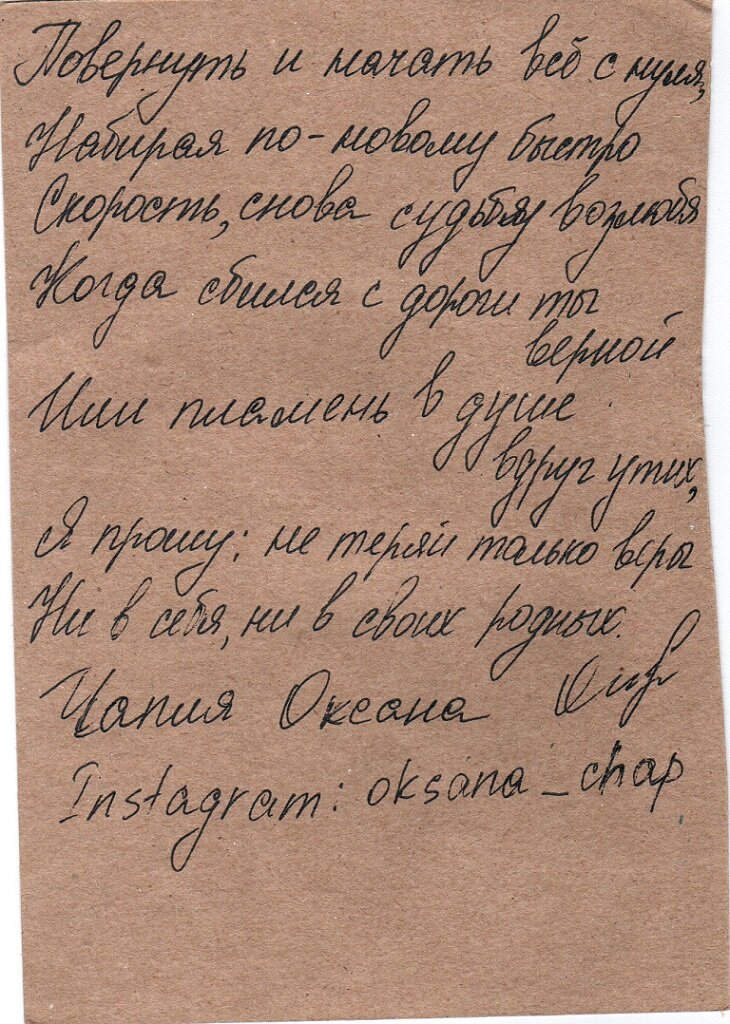 Повернуть и начать всё с нуля,
Набирая по-новому быстро
Скорость, снова судьбу возлюбя
Когда сбился с дороги ты
верной
Или пламень в душе
вдруг утих,
Я прошу: не теряй только веры
Ни в себя, ни в своих родных.
Чапия Оксана
Instagram: oksana_chap